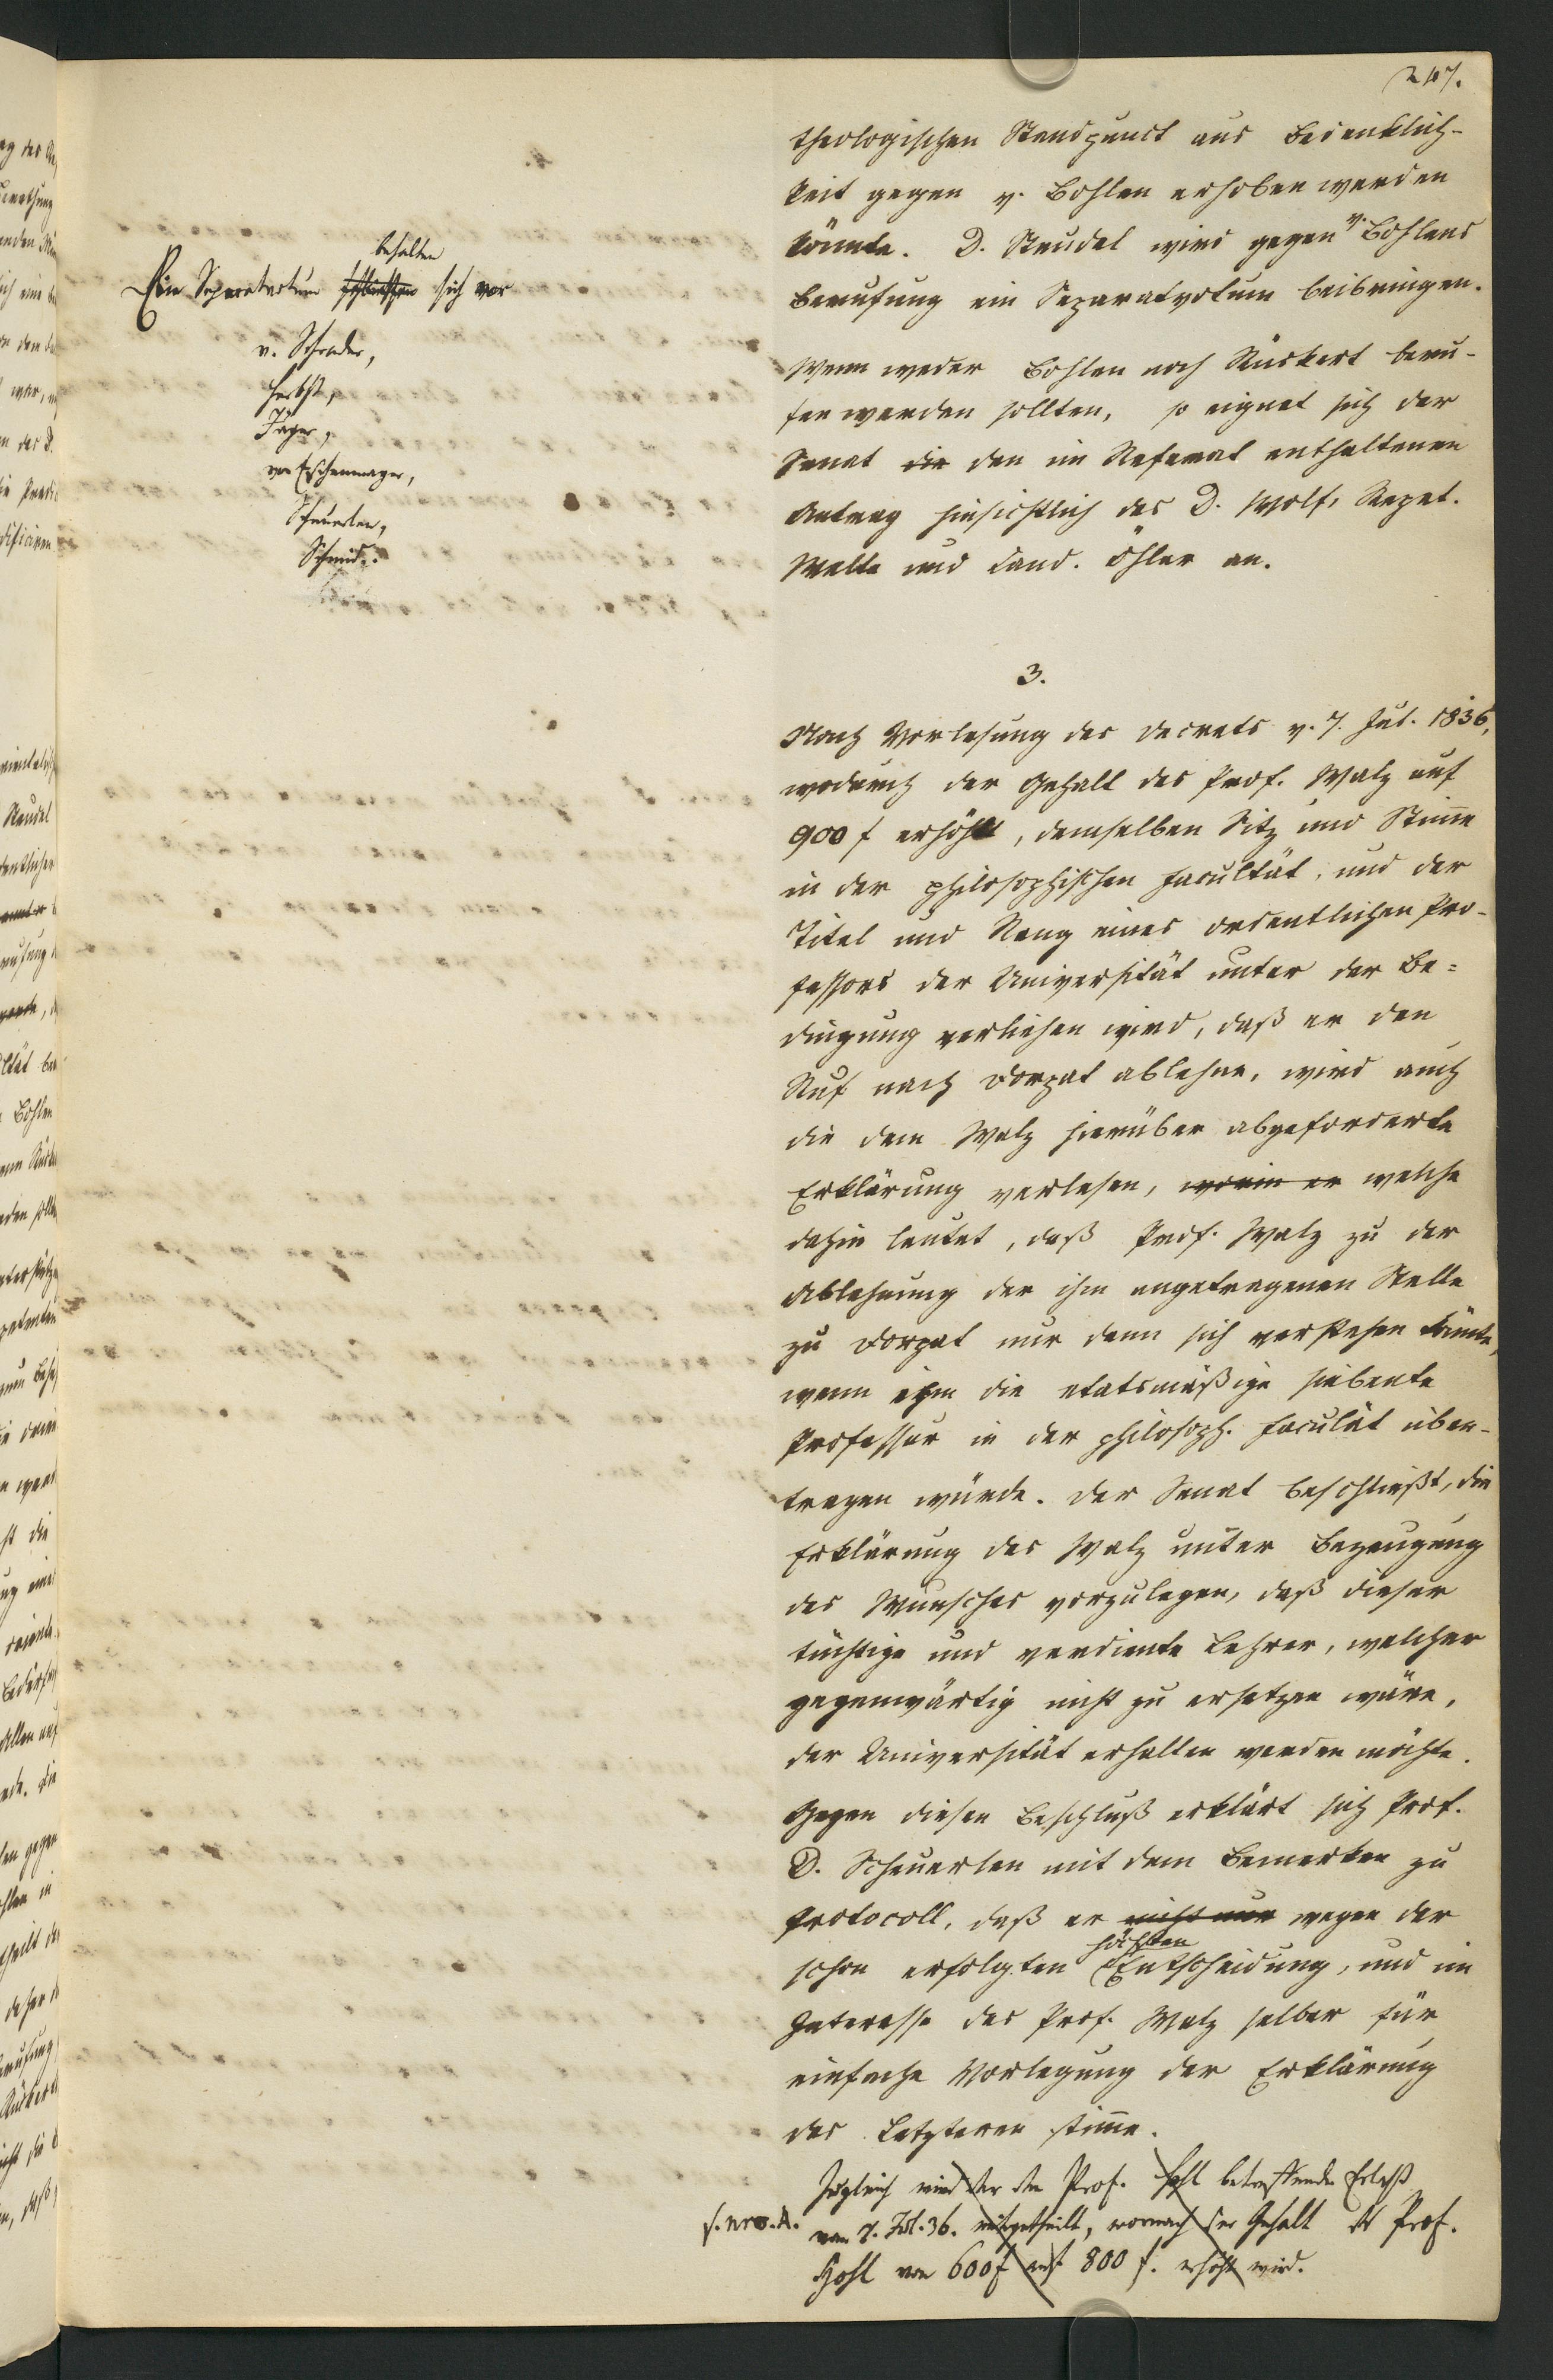 247.
theologischen Standpunct aus Bedenklich-
keit gegen v. Bohlen erhoben werden
könnte. D. Steudel wird gegen v. Bohlens
Berufung ein Separatvotum beibringen.
behalten
Ein Separatvotum sich vor
v. Schrader,
Herbst,
Jäger,
von Eschenmayer,
Scheurlen,
Schmid.
Wenn weder Bohlen noch Rückert beru-
fen werden sollten, so eignet sich der
Senat die den im Referat enthaltenen
Antrag hinsichtlich des D. Wolff, Repet.
Welte und Cand. Öhler an.
3.
Nach Vorlesung des Decrets v. 7. Jul. 1836,
wodurch der Gehalt des Prof. Walz auf
900 f erhöht, demselben Sitz und Stimme
in der philosophischen Facultät, und der
Titel und Rang eines ordentlichen Pro-
fessors der Universität unter der Be-
dingung verliehen wird, daß er den
Ruf nach Dorpat ablehne, wird auch
die dem Walz hierüber abgeforderte
Erklärung verlesen, worin er welche
dahin lautet, daß Prof. Walz zu der
Ablehnung der ihm angetragenen Stelle
zu Dorpat nur dann sich verstehen könnte,
wenn ihm die etatsmäßige siebente
Professur in der philosoph. Faculät über-
tragen würde. Der Senat beschließt, die
Erklärung des Walz unter Bezeugung
des Wunsches vorzulegen, daß dieser
tüchtige und verdiente Lehrer, welcher
gegenwärtig nicht zu ersetzen wäre,
der Universität erhalten werden möchte.
Gegen diesen Beschluß erklärt sich Prof.
D. Scheuerlen mit dem Bemerken zu
Protocoll, daß er nicht nur wegen der
schon erfolgten höchsten Entscheidung, und im
Interesse des Prof. Walz selber für
einfache Vorlegung der Erklärung
des Letzteren stimme.
Zugleich wird der den Prof. Hohl betreffende Erlaß
s. nro. 4. vom 7. Jul. 36. mitgetheilt, wornach der Gehalt des Prof.
Hohl von 600 f auf 800 f. erhöht wird.